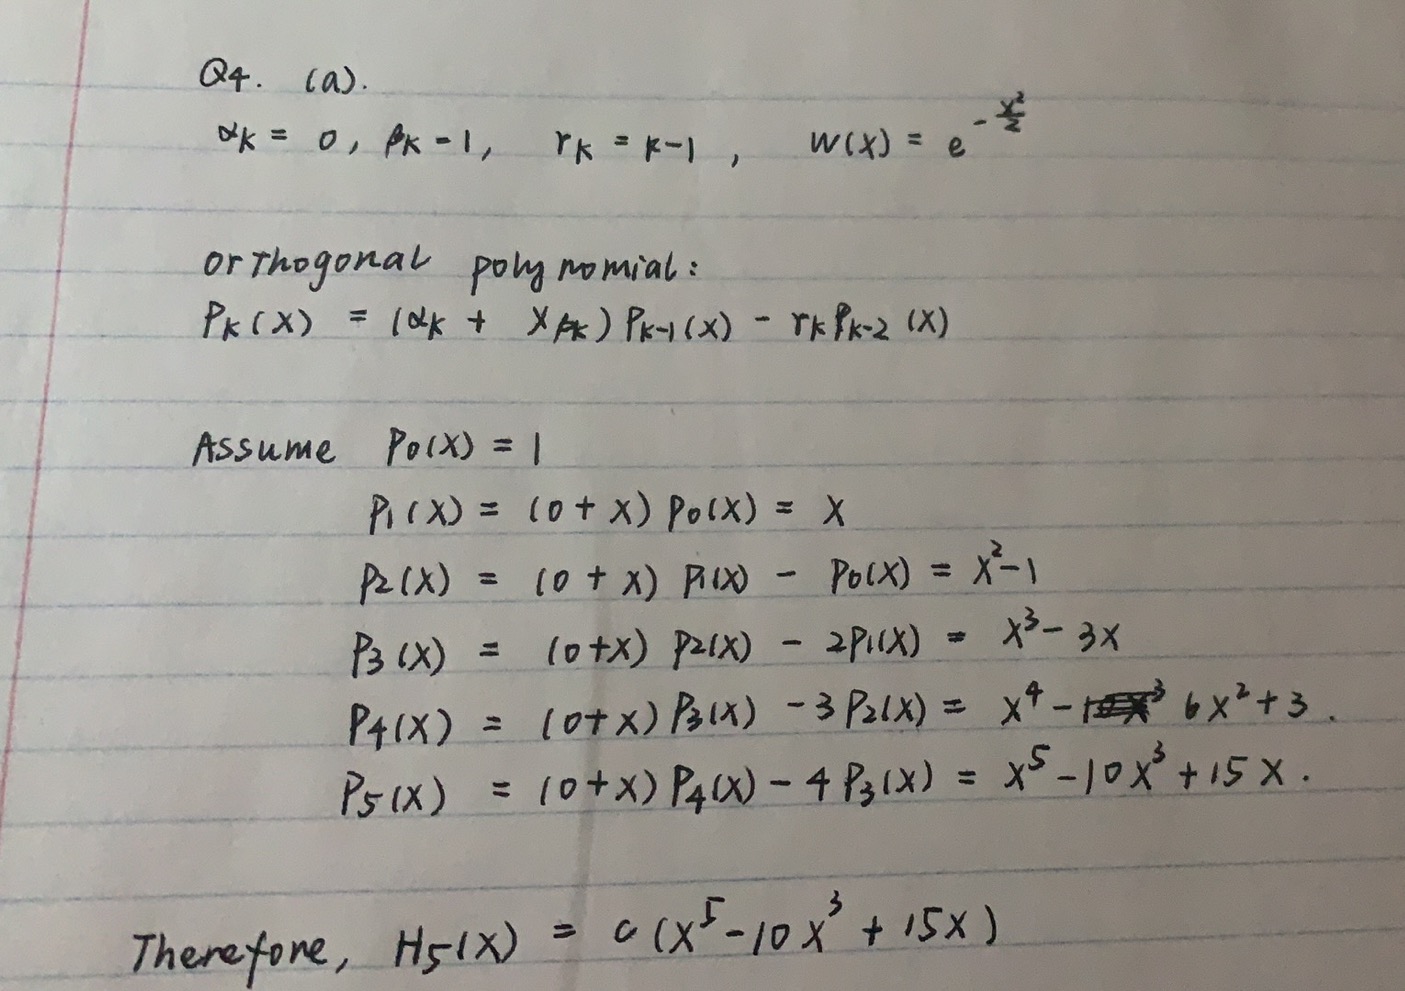 Q4. (a).
αk = 0, βk - 1, rk = k-1, w(x) = e^{-x²/2}
orthogonal polynomial:
Pk(x) = (αk + xβk) Pk-1(x) - rk Pk-2 (x)
Assume P0(x) = 1
P1(x) = (0 + x) P0(x) = x
P2(x) = (0 + x) P1(x) - P0(x) = x²-1
P3(x) = (0+x) P2(x) - 2P1(x) = x³ - 3x
P4(x) = (0+x) P3(x) - 3P2(x) = x⁴ - 6x² + 3.
P5(x) = (0+x) P4(x) - 4P3(x) = x⁵ - 10x³ + 15x.
Therefore, H5(x) = c(x⁵ - 10x³ + 15x)